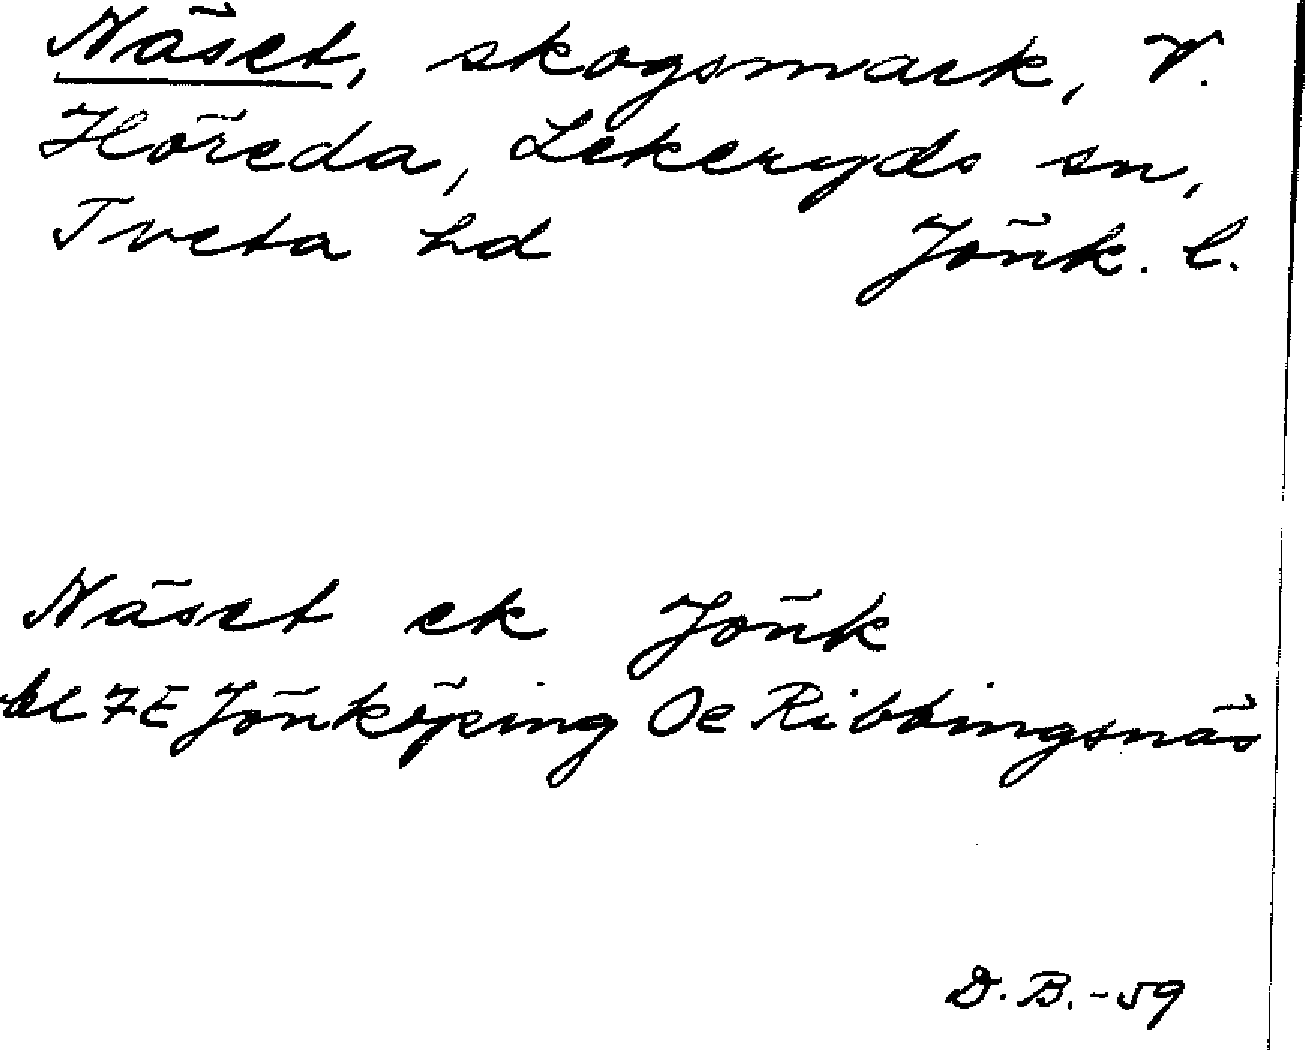 Näset, skogsmark, V.
Höreda, Lekeryds sn,
Tveta hd Jönk. l.
Näset ek Jönk
bl 7E Jönköping Oe Ribbingsnäs
D. B. -59